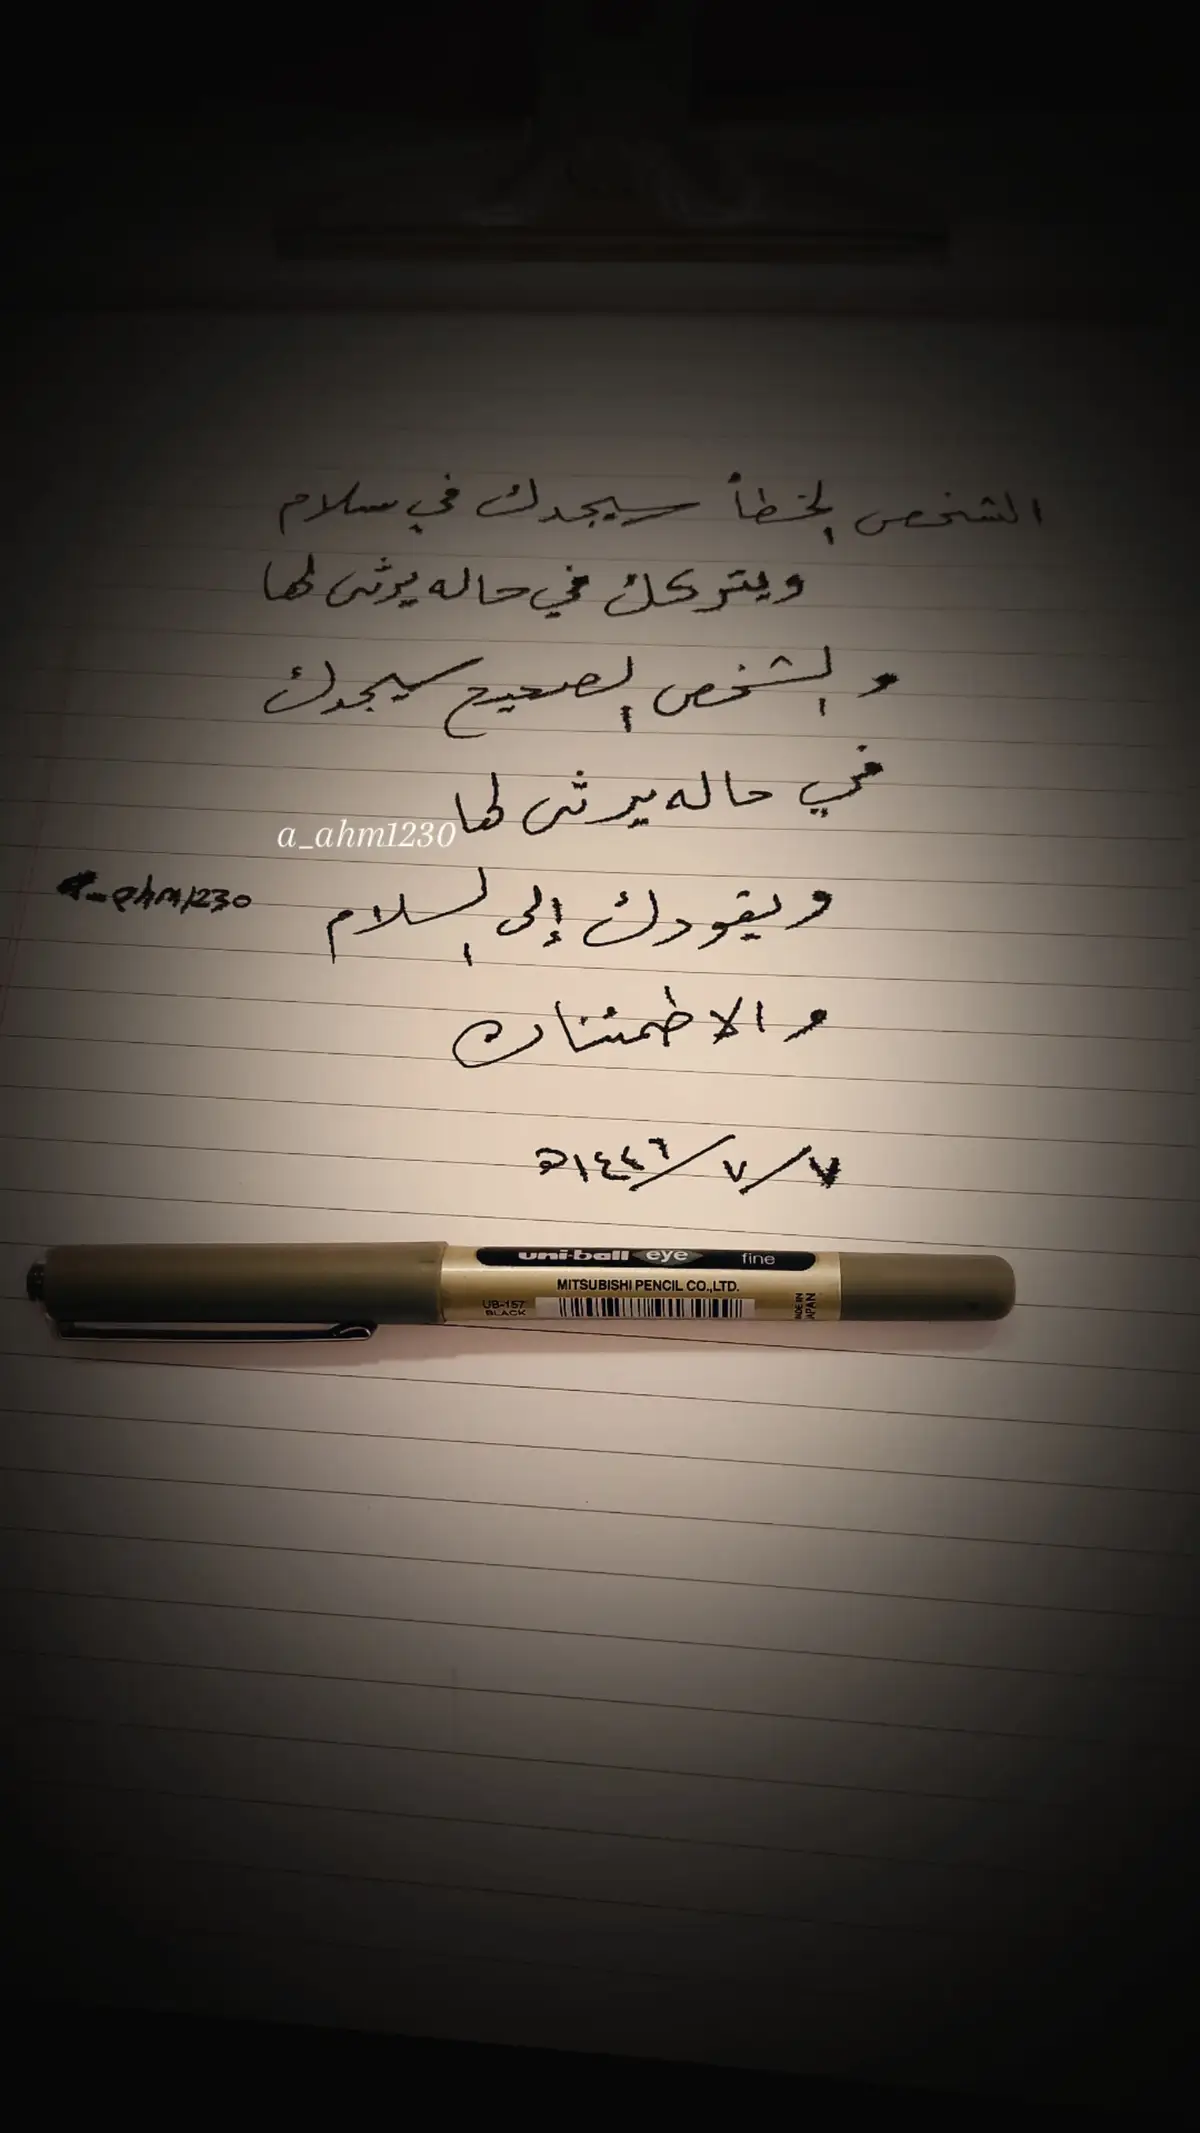 الشخص الخطأ سيجدك في سلام
ويتركك في حاله يرثى لها
والشخص الصحيح سيجدك
في حاله يرثى لها
a_ahm1230
ويقودك إلى السلام
a_ahm1230
والاطمئنان
٧/٧/١٤٤٦ھ
uni-ball eye fine
MITSUBISHI PENCIL CO.,LTD.
UB-157
BLACK
MADE IN
JAPAN